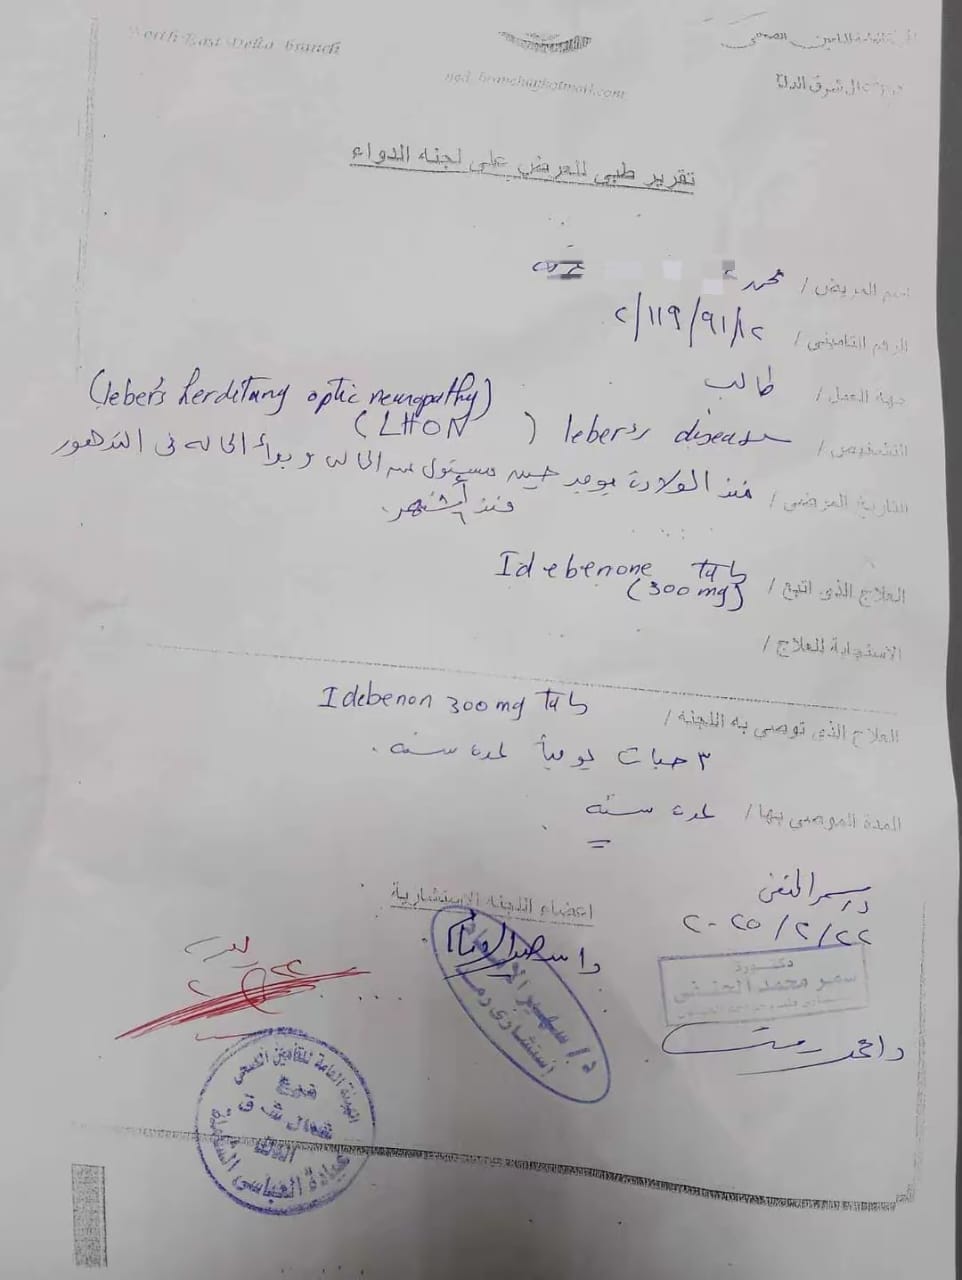 North East Delta branch
الهيئة العامة للتأمين الصحي
فرع شمال شرق الدلتا
ned_branch@hotmail.com
تقرير طبي للعرض على لجنه الدواء
اسم المريض / محمد
الرقم التأميني / ٢/١١٩/٩١/١٢
جهة العمل / طالب
(leber's herditany optic neuropathy)
التشخيص / leber's disease ( LHON)
التاريخ المرضى / منذ الولادة يوجد جين مسئول عن الحاله وبدأ الحاله فى التدهور
منذ أشهر.
العلاج الذى اتبع / Idebenone Tab
(300 mg)
الاستجابة للعلاج /
العلاج الذي توصي به اللجنة / Idebenon 300mg Tab
٣ حبات يومياً لمدة سنه.
المدة الموصي بها / لمدة سنه
اعضاء اللجنه الاستشارية
د. سمر الحنفى
٢٠٢٥/٢/٢٢
دكتورة
سمر محمد الحنفى
د/ سهير
د/ سهير
إستشارى رمد
د/ محمد
الهيئة العامة للتأمين الصحى
فرع
شمال شرق
الدلتا
عيادة العباسى